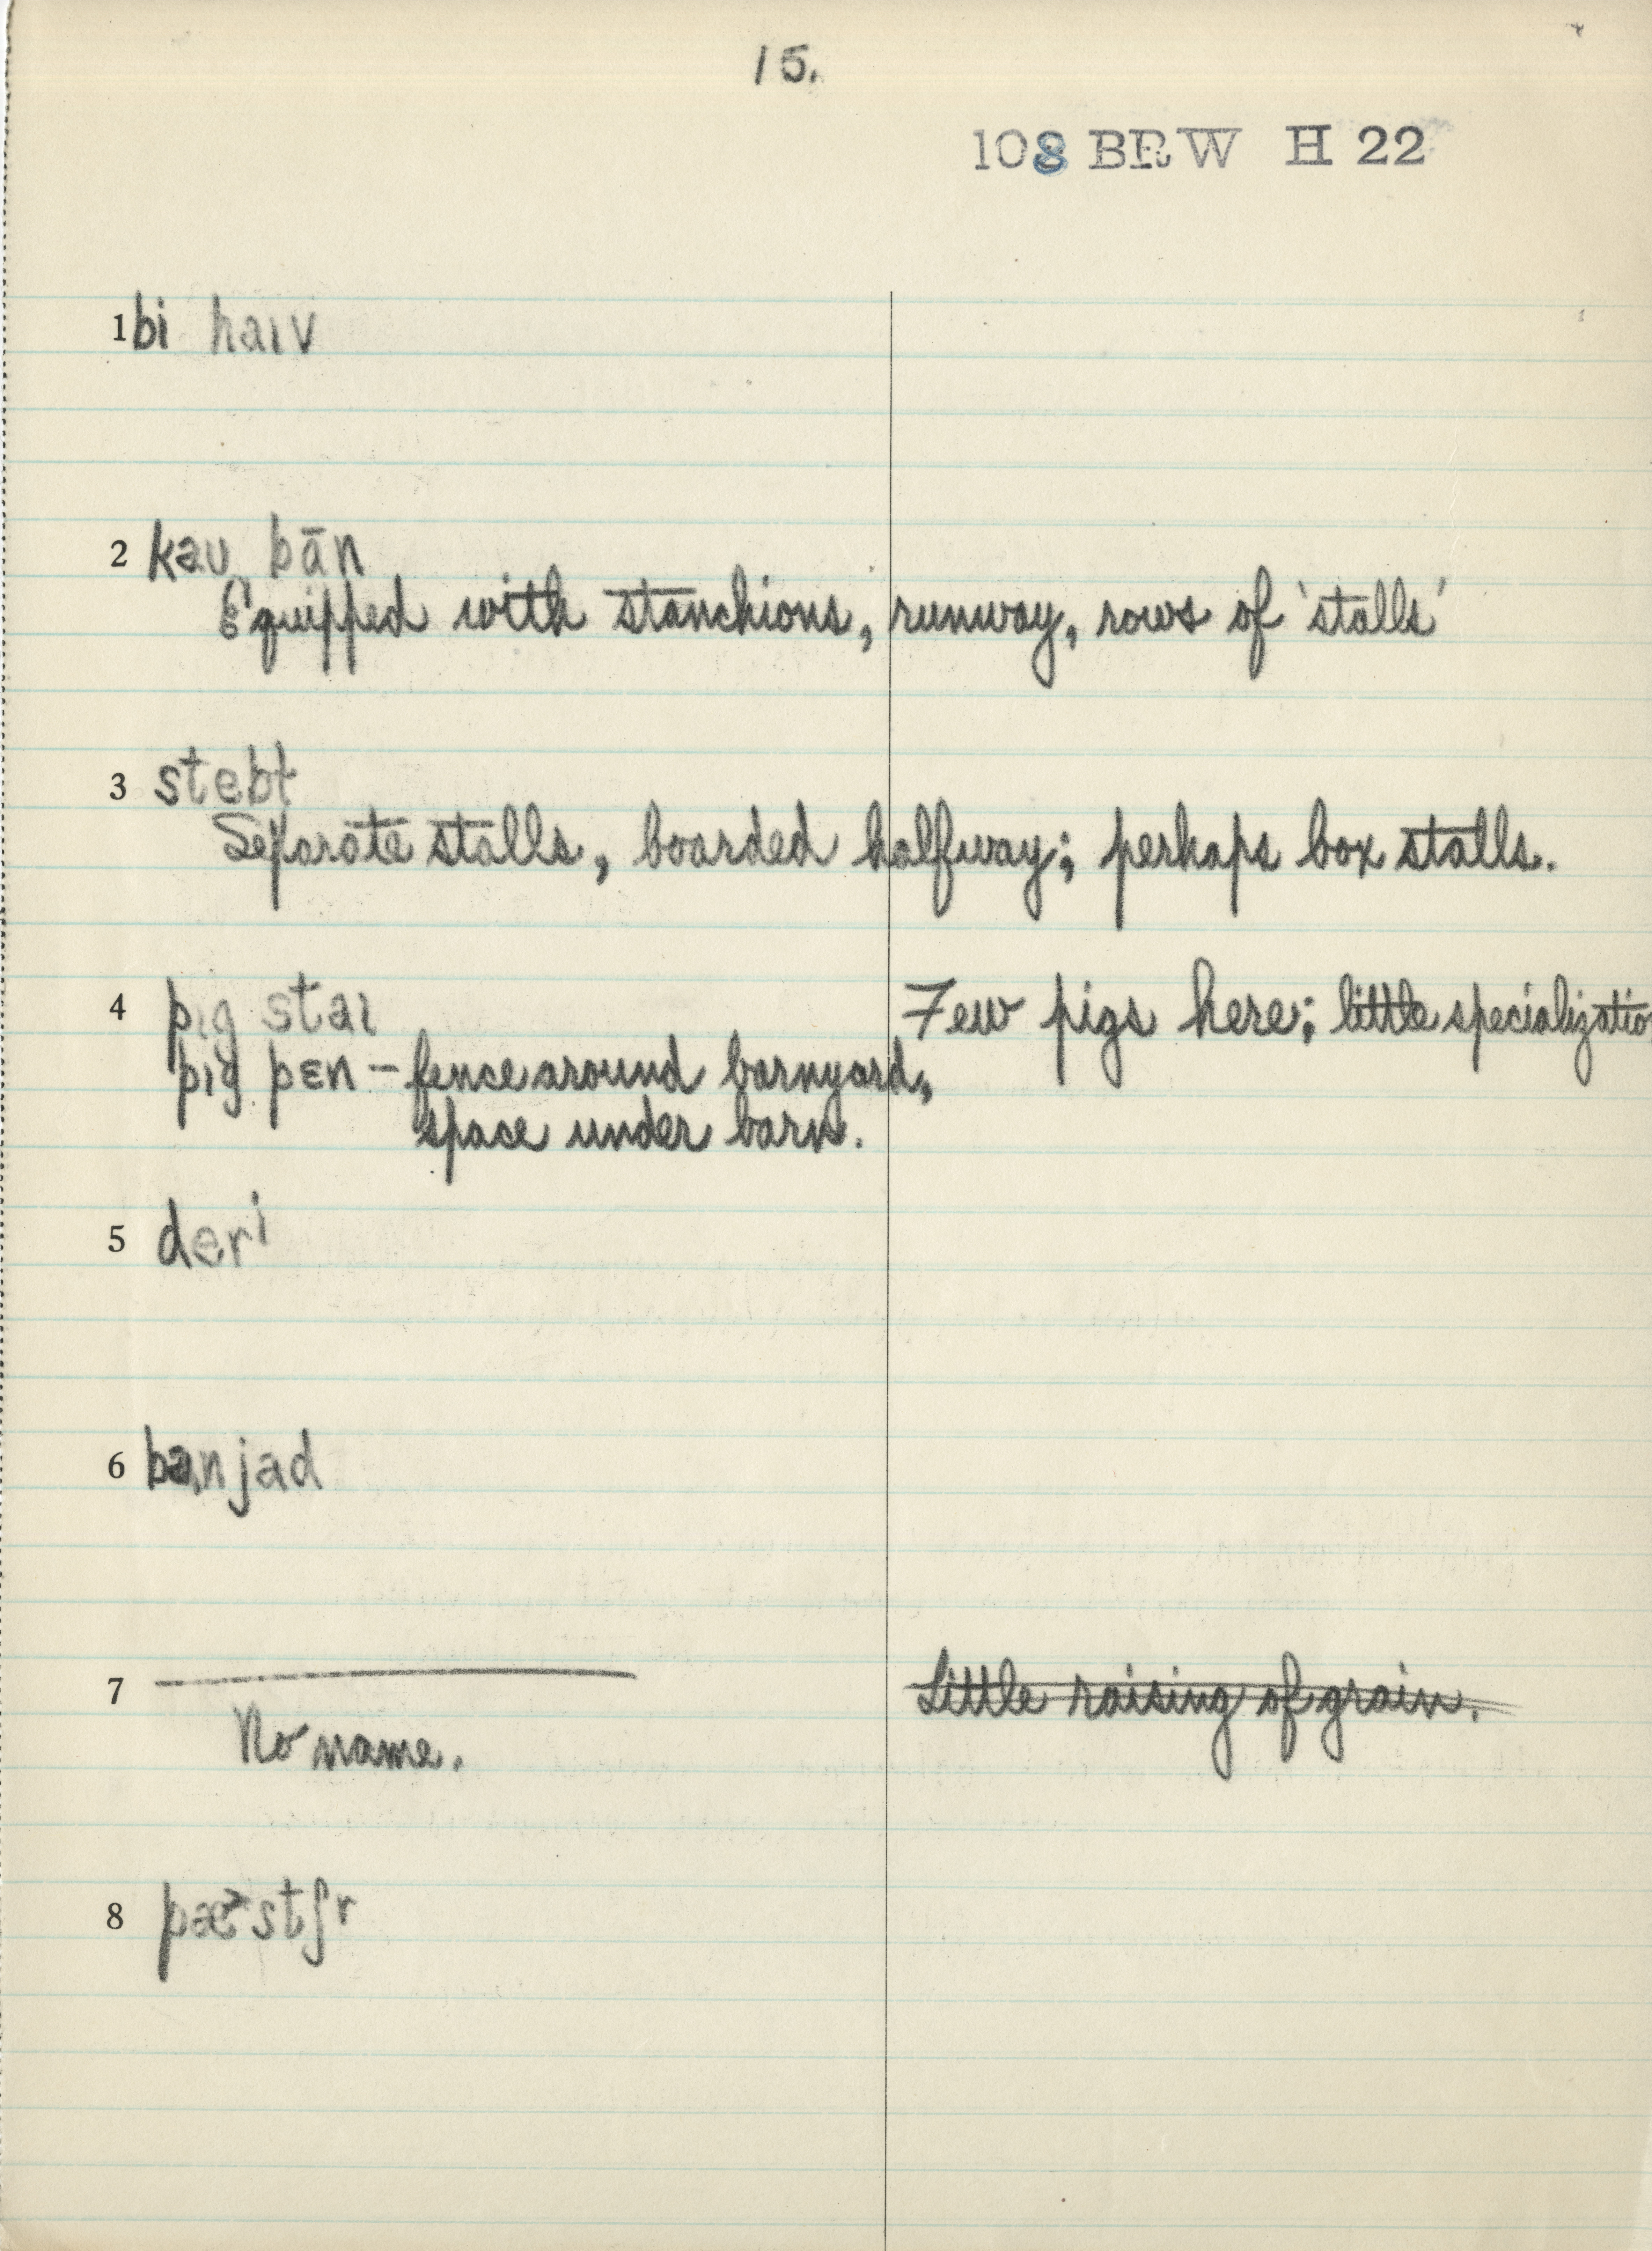 15.
108 BRW H 22
1 bi haıv
2 kaʊ bān
Equipped with stanchions, runway, rows of 'stalls'
3 stebɫ
Separate stalls, boarded halfway; perhaps box stalls.
4 pıg staı Few pigs here; little specializatio
pıg pɛn – fence around barnyard,
space under barn.
5 deri
6 banjad
7 Little raising of grain.
No name.
8 pæ>stʃr